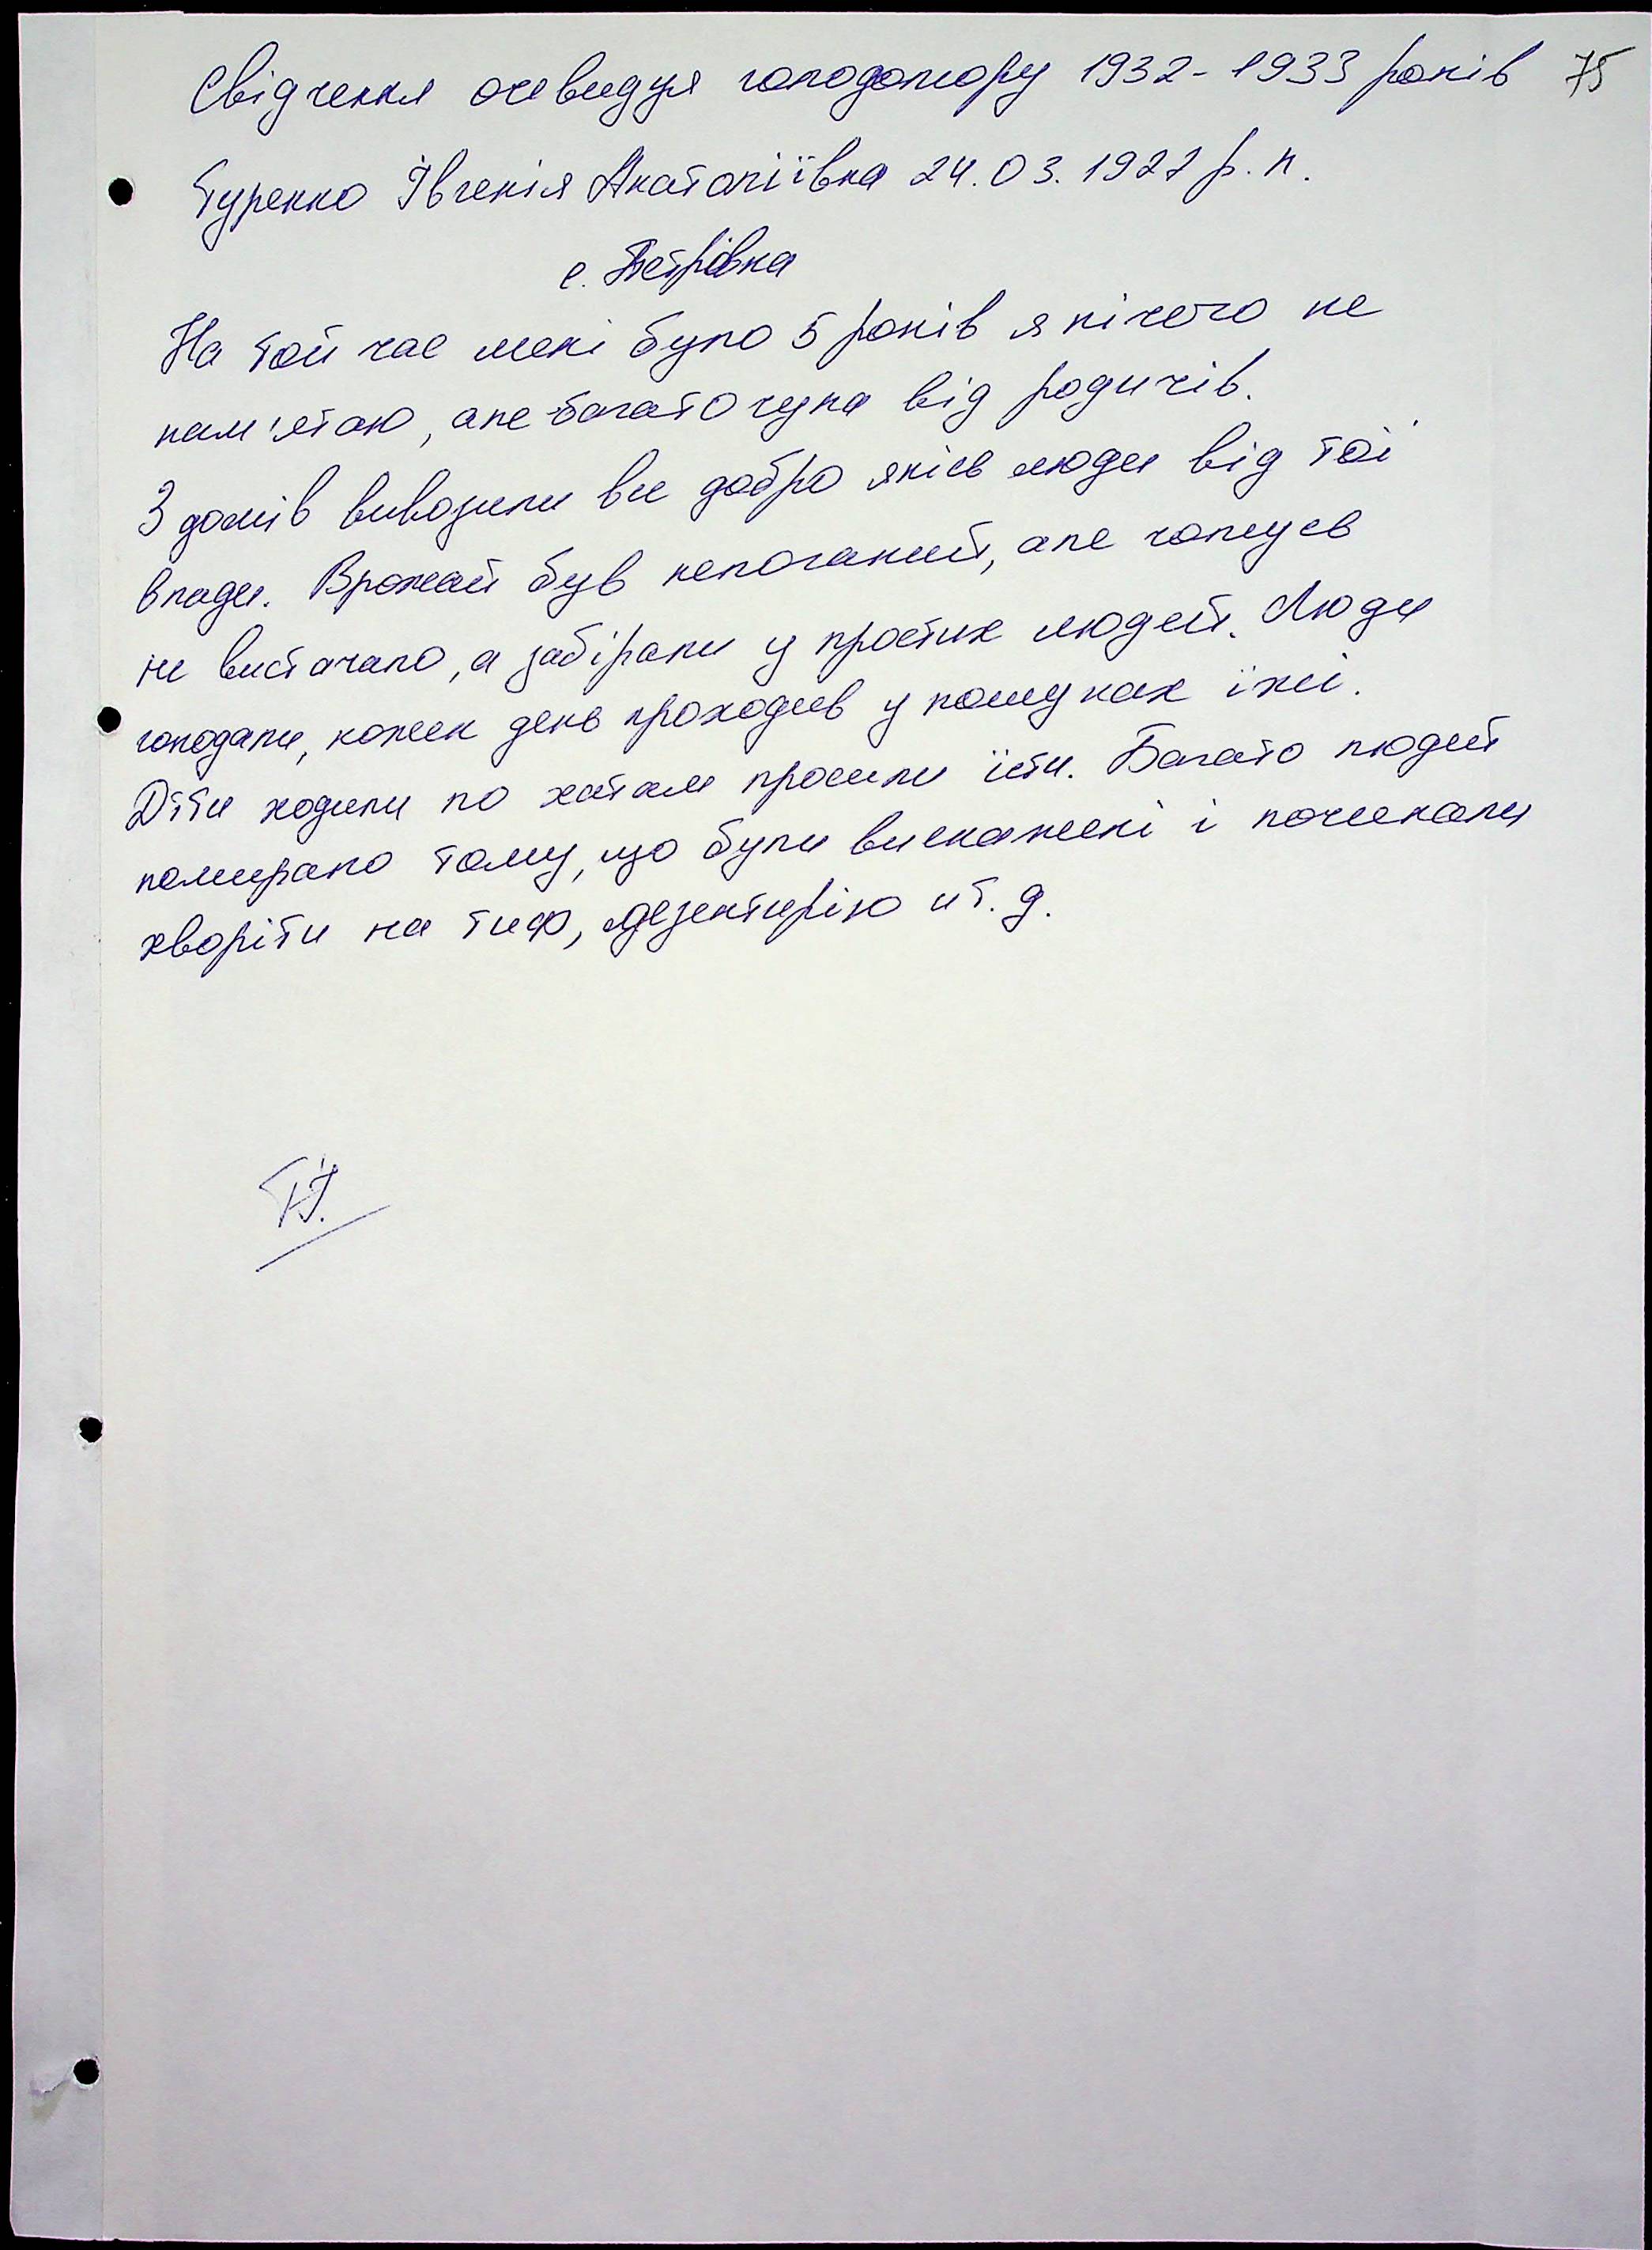 Свідчення очевидця голодомору 1932-1933 років 75
Туренко Івгенія Анатоліївна 24.03.1927 р.н.
с. Петрівка
На той час мені було 5 років я нічого не
пам'ятаю, але багато чула від родичів.
З домів вивозили все добро якісь люди від тої
влади. Врожай був непоганий, але чомусь
не вистачало, а забірали у простих людей. Люди
голодали, кожен день проходив у пошуках їжі.
Діти ходили по хатам просили їсти. Багато людей
помирало тому, що були виснажені і починали
хворіти на тиф, дезентирію и т. д.
Т.І.